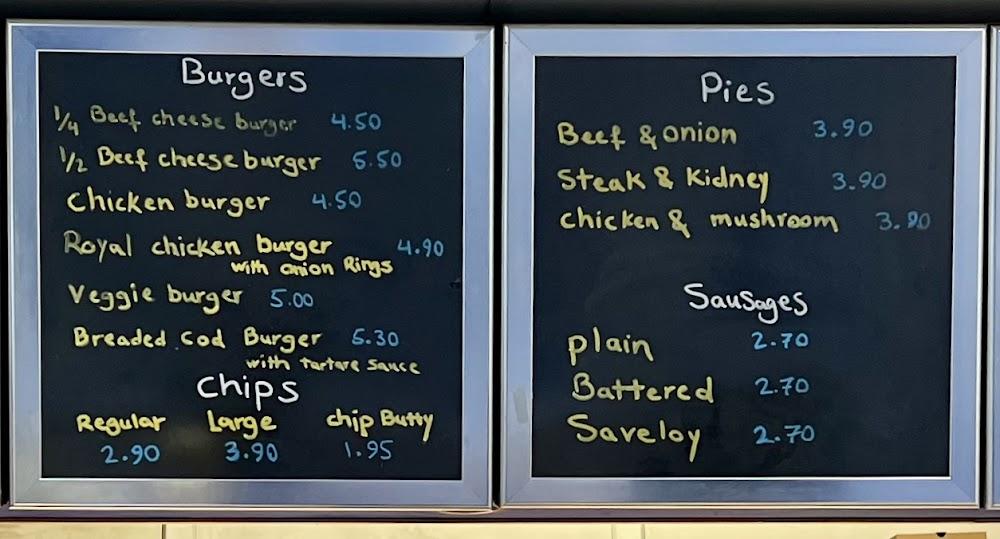 Burgers
1/4 Beef cheese burger 4.50
1/2 Beef cheese burger 5.50
Chicken burger 4.50
Royal chicken burger 4.90
with onion Rings
Veggie burger 5.00
Breaded cod Burger 5.30
with tartare sauce
chips
Regular Large chip Butty
2.90 3.90 1.95
Pies
Beef & onion 3.90
Steak & Kidney 3.90
chicken & mushroom 3.90
Sausages
plain 2.70
Battered 2.70
Saveloy 2.70